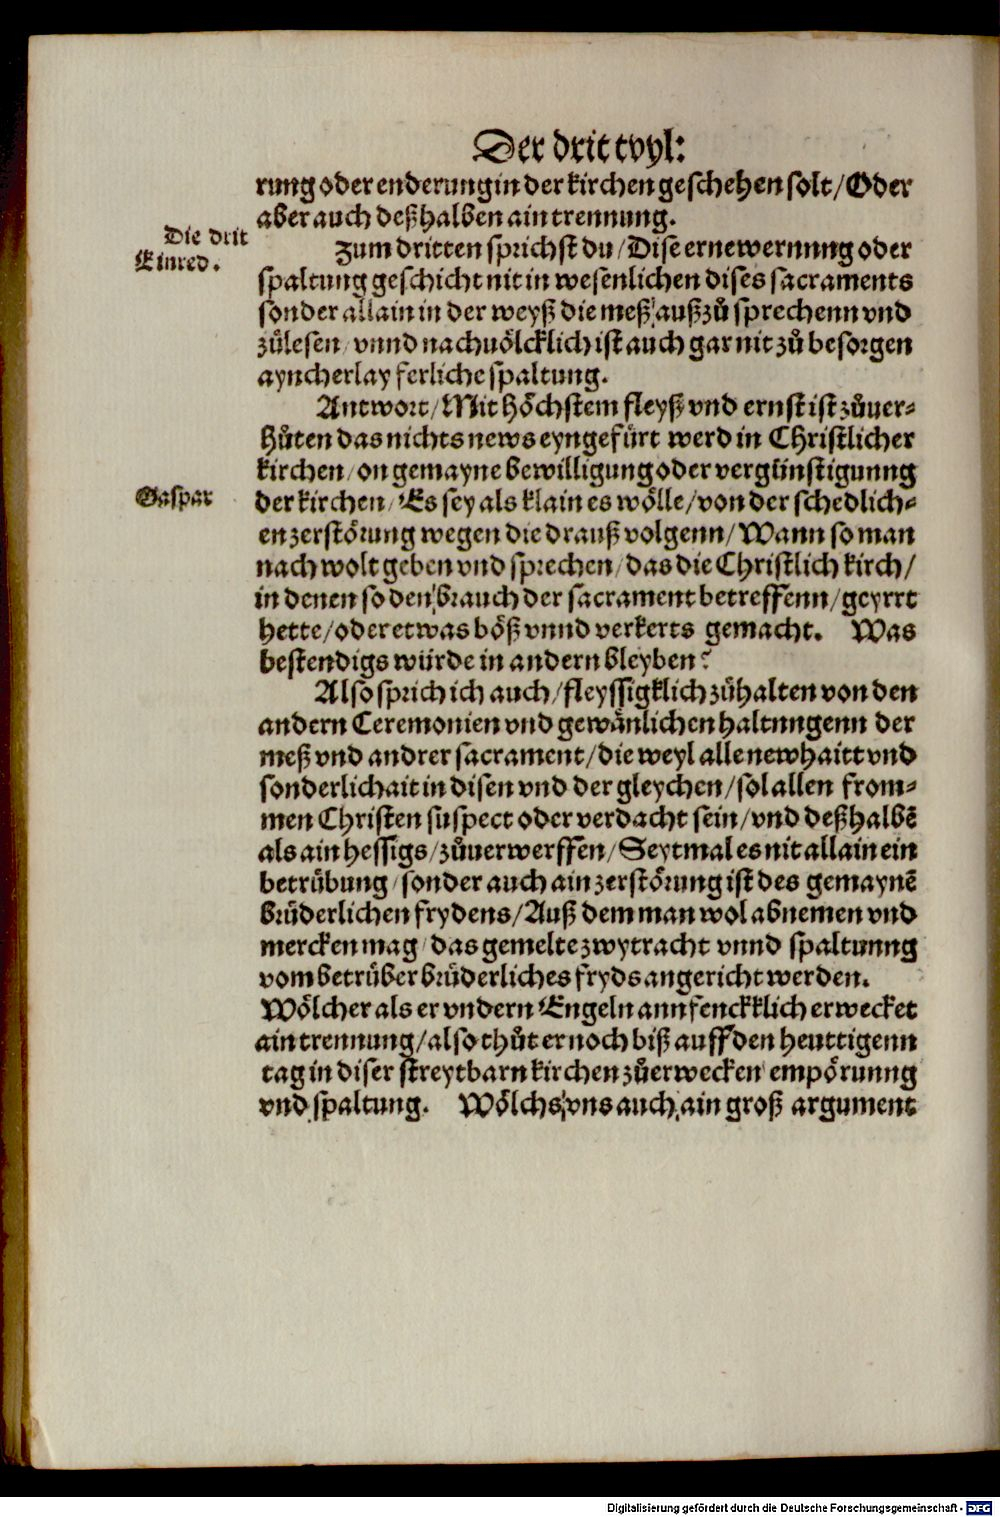 Der drit tvyl:
rung oder enderung in der kirchen geschehen solt/Oder
aber auch deßhalben ain trennung.
Die drit
Einred.
Zum dritten sprichst du/Dise ernewernung oder
spaltung geschicht nit in wesenlichen dises sacraments
sonder allain in der weyß die meß außzů sprechenn vnd
zůlesen/vnnd nachuölcklich ist auch gar nit zů besorgen
ayncherlay ferliche spaltung.
Antwort/Mit höchstem fleyß vnd ernst ist zůuer-
hůten das nichts news eyngefürt werd in Christlicher
kirchen/on gemayne bewilligung oder vergünstigunng
Gaspar
der kirchen/Es sey als klain es wölle/von der schedlich-
en zerstörung wegen die drauß volgenn/Wann so man
nach wolt geben vnd sprechen/das die Christlich kirch/
in denen so den brauch der sacrament betreffenn/geyrrt
hette/oder etwas böß vnnd verkerts gemacht. Was
bestendigs würde in andern bleyben?
Also sprich ich auch/fleyssigklich zůhalten von den
andern Ceremonien vnd gewänlichen haltungenn der
meß vnd andrer sacrament/die weyl alle newhaitt vnd
sonderlichait in disen vnd der gleychen/sol allen from-
men Christen suspect oder verdacht sein/vnd deßhalbē
als ain hessigs/zůuerwerffen/Seytmal es nit allain ein
betrübung/sonder auch ain zerstörung ist des gemaynē
brüderlichen frydens/Auß dem man wol abnemen vnd
mercken mag/das gemelte zwytracht vnnd spaltunng
vom betrüber brüderliches fryds angericht werden.
Wölcher als er vndern Engeln annfenckklich erwecket
ain trennung/also thůt er noch biß auff den heuttigenn
tag in diser streytbarn kirchen zůerwecken empörunng
vnd spaltung. Wölchs vns auch ain groß argument
Digitalisierung gefördert durch die Deutsche Forschungsgemeinschaft - DFG